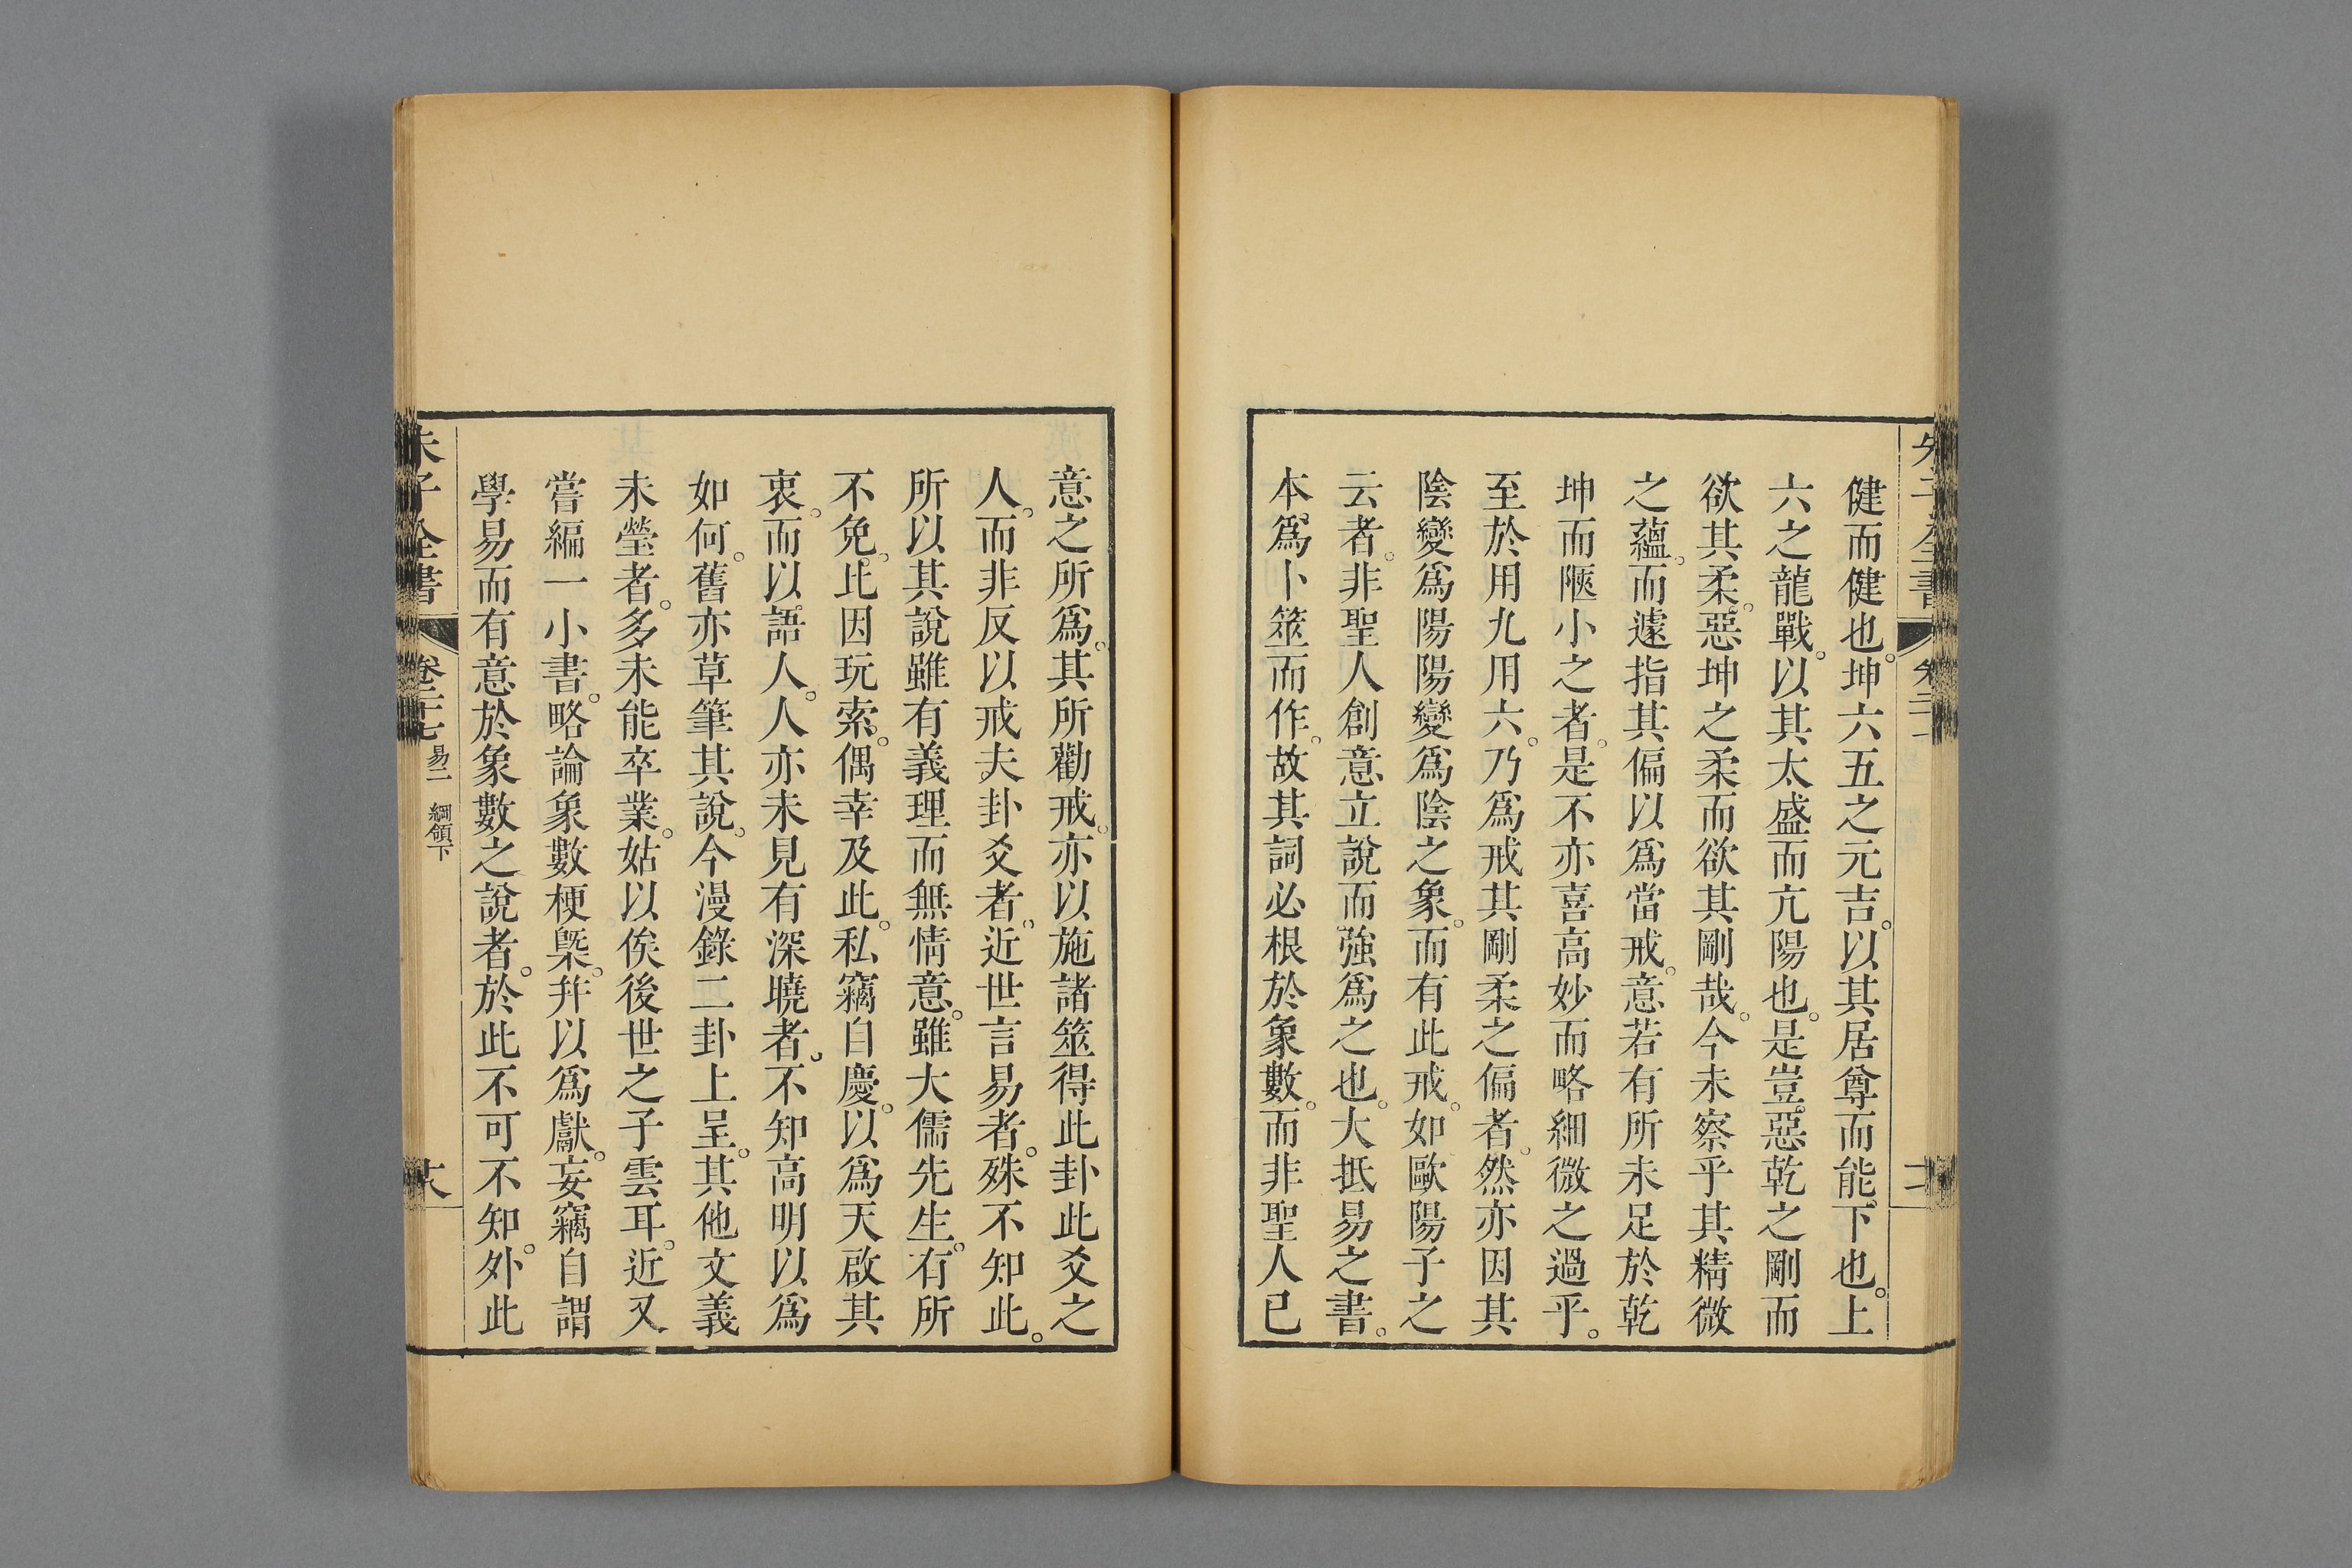 健而健也。坤六五之元吉。以其居尊而能下也。上
六之龍戰。以其太盛而亢陽也。是豈惡乾之剛而
欲其柔。惡坤之柔而欲其剛哉。今未察乎其精微
之蘊。而遽指其偏以爲當戒。意若有所未足於乾
坤而陋小之者。是不亦喜高妙而略細微之過乎。
至於用九用六。乃爲戒其剛柔之偏者。然亦因其
陰變爲陽陽變爲陰之象。而有此戒。如歐陽子之
云者。非聖人創意立說而強爲之也。大抵易之書。
本爲卜筮而作。故其詞必根於象數。而非聖人己
意之所爲。其所勸戒。亦以施諸筮得此卦此爻之
人。而非反以戒夫卦爻者。近世言易者。殊不知此。
所以其說雖有義理而無情意。雖大儒先生。有所
不免。比因玩索。偶幸及此。私竊自慶。以爲天啟其
衷。而以語人。人亦未見有深曉者。不知高明以爲
如何。舊亦草筆其說。今漫錄二卦上呈。其他文義
未瑩者。多未能卒業。姑以俟後世之子雲耳。近又
嘗編一小書。略論象數梗槩。幷以爲獻。妄竊自謂
學易而有意於象數之說者。於此不可不知。外此
朱子全書 卷二十七 易二 綱領下